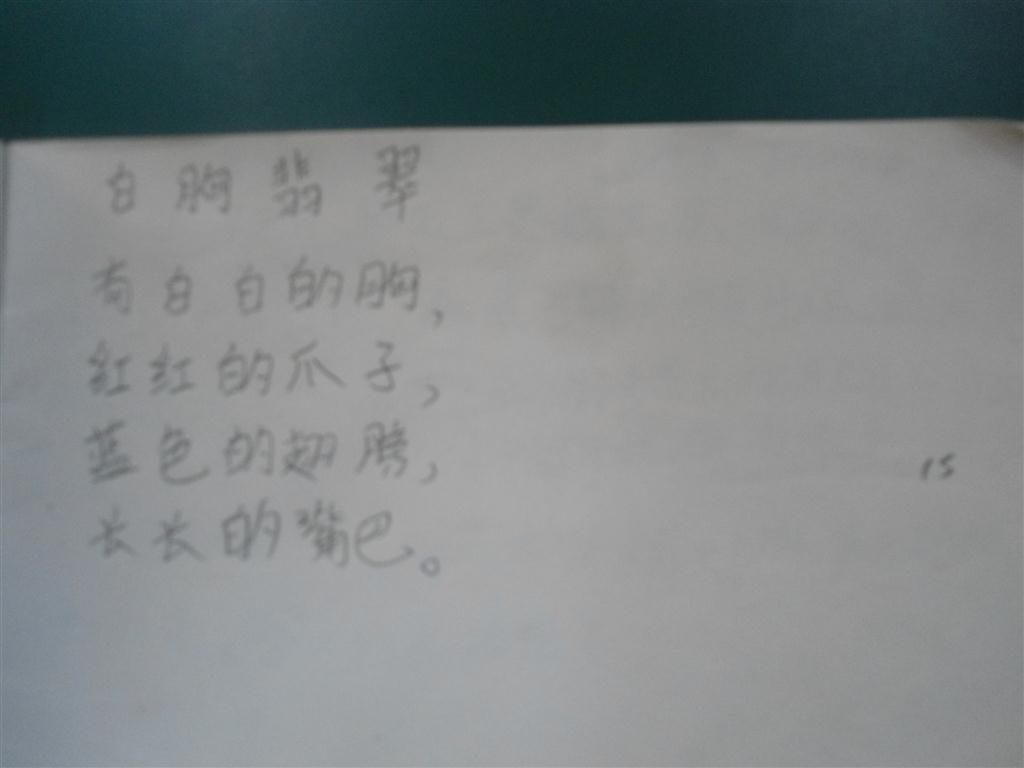 白胸翡翠
有白白的胸，
红红的爪子，
蓝色的翅膀，
15
长长的嘴巴。